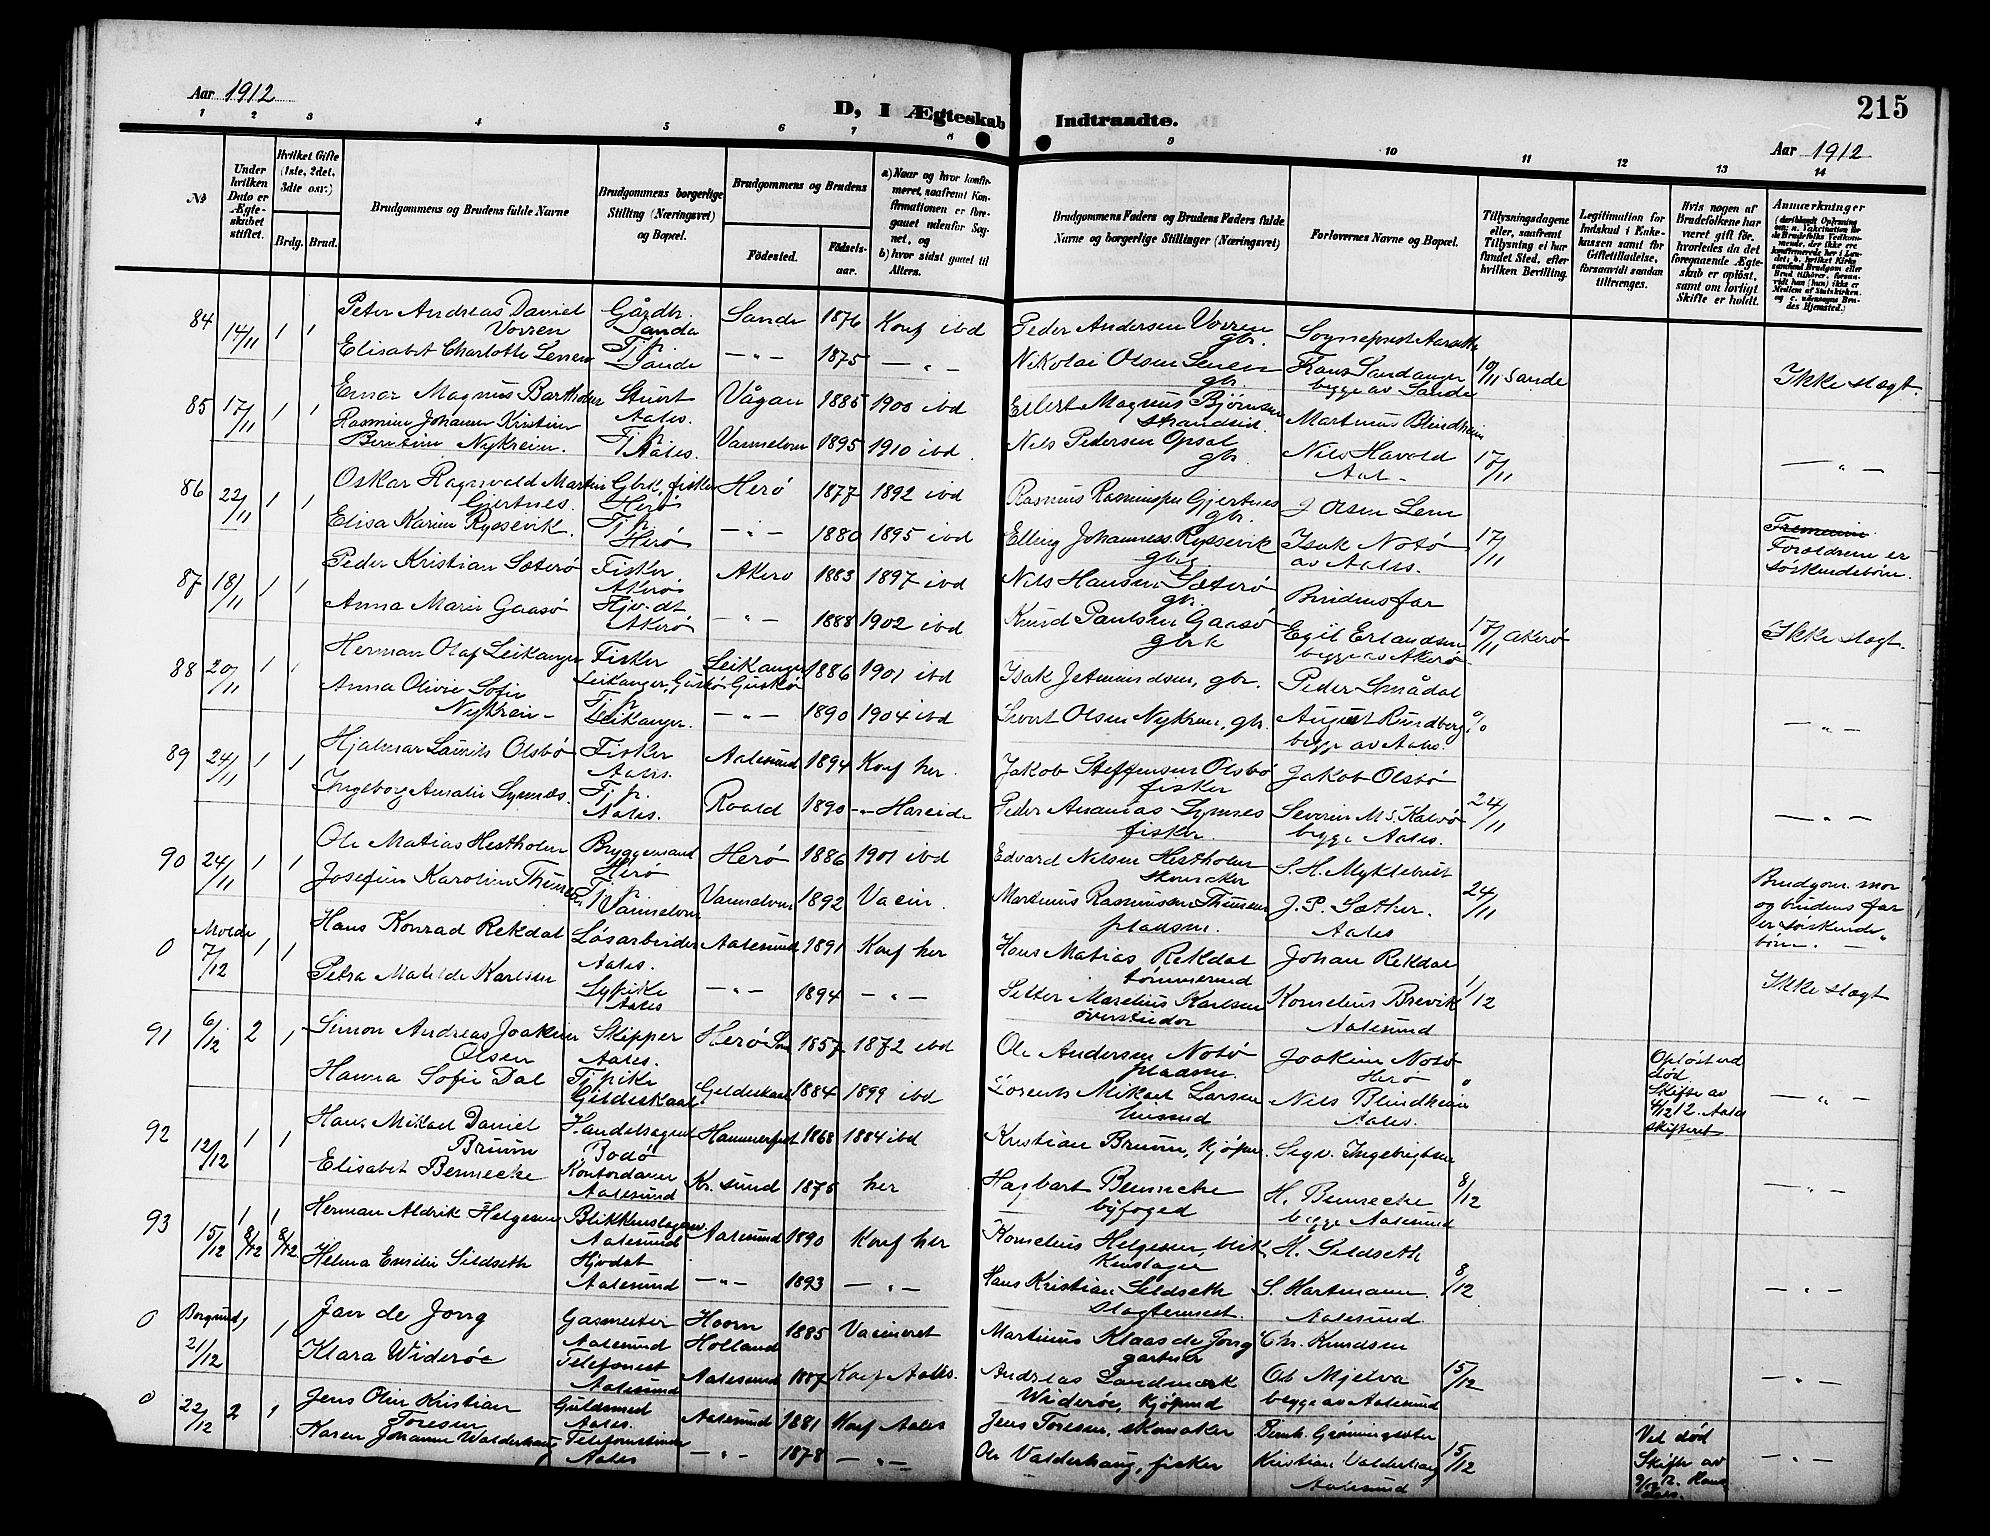 Aar 1912
D, I Ægteskab Indtraadte.
215
Aar 1912
1 2 3 4 5 6 7 8 9 10 11 12 13 14
No
Under hvilken Dato er Ægteskabet stiftet.
Hvilket Gifte (1ste, 2det, 3die osv.)
Brdg. Brud.
Brudgommens og Brudens fulde Navne
Brudgommens borgerlige Stilling (Næringsvei) og Bopæl.
Brudgommens og Brudens
Födested.
Födselsaar.
a) Naar og hvor konfirmeret, saafremt Konfirmationen er foregaaet udenfor Sognet, og
b) hvor sidst gaaet til Alters.
Brudgommens Faders og Brudens Faders fulde Navne og borgerlige Stillinger (Næringsvei)
Forlovernes Navne og Bopæl.
Tillysningsdagene eller, saafremt Tillysning ei har fundet Sted, efter hvilken Bevilling.
Legitimation for Indskud i Enkekassen samt for Giftetilladelse, forsaavidt saadan tiltrænges.
Hvis nogen af Brudefolkene har været gift för, hvorledes da det foregaaende Ægteskab er oplöst, samt om lovligt Skifte er holdt.
Anmærkninger
84 14/11 1 1 Peter Andreas Daniel Vorren Gårdb. Sande Sande 1876 Konf ibd Peder Andersen Vorren gbr. Sogneprest Aarseth
Elisabet Charlotte Lenen Tj.p. Sande —"— 1875 —"— Nikolai Olsen Lenen gbr. Frans Sandanger begge av Sande 10/11 Sande Ikke slægt.
85 17/11 1 1 Einar Magnus Bartholm Stuert Aales. Vågan 1885 1900 ibd Ellert Magnus Bjørnsen strandsid. Martinus Blindheim
Rasmine Johanne Kristine Berntine Nykreim. Tj.p. Aales. Vannelven 1895 1910 ibd. Nils Pedersen Opsal gbr. Nils Havold Aal- 17/11 —"—
86 22/11 1 1 Oskar Ragnvald Martin Gjertnes. Gbr., fisker Herø Herø 1877 1892 ibd Rasmus Rasmussen Gjertnes gbr. J Olsen Lem
Elisa Karine Ryssevik. Tj.p. Herø —"— 1880 1895 ibd Elling Johanness. Ryssevik gbr. Isak Notø av Aales. 17/11 Foreldrene er søskendebörn.
87 18/11 1 1 Peder Kristian Sæterø Fisker Akerø Akerø 1883 1897 ibd Nils Hansen Sæterø gbr. Brudens far
Anna Marie Gaasø Hjv. dt Akerø —"— 1888 1902 ibd Knud Paulsen Gaasø gbr. Egil Erlandsen begge av Akerø 17/11 Akerø Ikke slægt.
88 20/11 1 1 Herman Olaf Leikanger Fisker Leikanger, Gurskø Leikanger Gurskø 1886 1901 ibd Isak Jetmundsen, gbr. Peder Smådal
Anna Olivie Sofie Nykrein- Tj.p. Leikanger. —"— 1890 1904 ibd Sivert Olsen Nykrein, gbr. August Rundberg begge av Aales. —"—
89 24/11 1 1 Hjalmar Laurits Olsbø Fisker Aales. Aalesund 1894 Konf her. Jakob Steffensen Olsbø fisker Jakob Olsbø
Ingeborg Amalie Symnes. Tj.p. Aales. Roald 1890 -"- Hareide Peder Ananias Symnes fisker. Severin M. Kalvø begge Aales. 24/11 —"—
90 24/11 1 1 Ole Matias Hestholm Bryggemand Herø Herø 1886 1901 ibd Edvard Nilsen Hestholm S. H. Myklebust
Josefine Karoline Thunem Tj.p. Vannelven Vannelven 1892 Vacin. Martinus Rasmussen Thunem pladsm. J. P. Sæther. Aales 24/11 Brudgom. mor og brudens far er söskendebörn.
0 Molde 7/12 1 1 Hans Konrad Rekdal Løsarbeider Aales. Aalesund 1891 Konf her Hans Matias Rekdal tømmermd Johan Rekdal
Petra Matilde Karlsen Sypike Aales —"— 1894 —"— Petter Marelius Karlsen Kornelius Brevik Aalesund 1/12 Ikke slægt
91 6/12 2 1 Simon Andreas Joakim Olsen Skipper Aales. Herø 1857 1872 ibd Ole Andersen Notø pladsm. Joakim Notø Herø
Hanna Sofie Dal Tj.pike Gildeskaal Gildeskaal 1884 1899 ibd Lorents Mikael Larsen husmd Nils Blindheim Aales. Opløst ved död. Skifte av 4/12 12. Aales skifteret —"—
92 12/12 1 1 Hans Mikael Daniel Bruun Handelsagent Bodø Hammerfest 1868 1884 ibd Kristian Bruun, kjøpm. Sigv. Ingebrigtsen
Elisabet Bennecke Kontordame Aalesund Kr. sund 1875 her Hagbart Bennecke byfoged H. Bennecke begge Aalesund 8/12 —"—
93 15/12 1 8/12 1 8/12 Herman Aldrik Helgesen Blikkenslager Aalesund Aalesund 1890 Konf her Kornelius Helgesen, blikkenslager H. Sildseth
Helma Emilie Sildseth Hjvdat Aalesund —"— 1893 —"— Hans Kristian Sildseth slagtermest. S. Hartmann. Aalesund. 8/12 —"—
0 Borgund, 21/12 1 Jan de Jong Gasmester Aalesund Hoorn Holland 1885 Vacineret Martinus Klaas de Jong gartner Chr. Knudsen
Klara Widerøe Telefonist Aalesund Aalesund 1887 Konf Aales. Andreas Landmark Widerøe, kjøpmd Ole Mjelva begge av Aalesund 15/12 —"—
0 22/12 2 1 Jens Olin Kristian Toresen Guldsmed Aales. Aalesund 1881 Konf Aales Jens Toresen, skomaker Bernh. Grønningsæter
Karen Johanne Walderhaug Telefonistinde Aales —"— 1878 —"— Ole Valderhaug, fisker Kristian Valderhaug Aalesund 15/12 Ved död Skifte av —"—